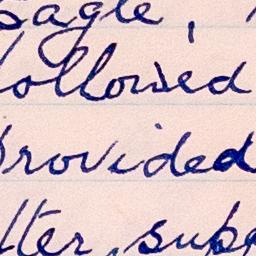 eagle,
followed
provided
tter, supp